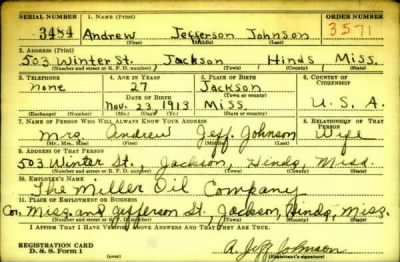 SERIAL NUMBER 1. NAME (Print) ORDER NUMBER
3484 Andrew Jefferson Johnson 3571
(First) (Middle) (Last)
2. ADDRESS (Print)
503 Winter St. Jackson Hinds Miss.
(Number and street or R. F. D. number) (Town) (County) (State)
3. TELEPHONE 4. AGE IN YEARS 5. PLACE OF BIRTH 6. COUNTRY OF CITIZENSHIP
none 27 Jackson
(Town or county)
DATE OF BIRTH
Nov. 23, 1913 Miss U. S. A.
(Exchange) (Number) (Mo.) (Day) (Yr.) (State or country)
7. NAME OF PERSON WHO WILL ALWAYS KNOW YOUR ADDRESS 8. RELATIONSHIP OF THAT PERSON
Mrs. Andrew Jeff. Johnson Wife
(Mr., Mrs., Miss) (First) (Middle) (Last)
9. ADDRESS OF THAT PERSON
503 Winter St. Jackson, Hinds, Miss.
(Number and street or R. F. D. number) (Town) (County) (State)
10. EMPLOYER'S NAME
The Miller Oil Company
11. PLACE OF EMPLOYMENT OR BUSINESS
Co. Miss. and Jefferson St. Jackson, Hinds, Miss.
(Number and street or R. F. D. number) (Town) (County) (State)
I AFFIRM THAT I HAVE VERIFIED ABOVE ANSWERS AND THAT THEY ARE TRUE.
REGISTRATION CARD
D. S. S. Form 1
A. Jeff Johnson
(Registrant's signature)